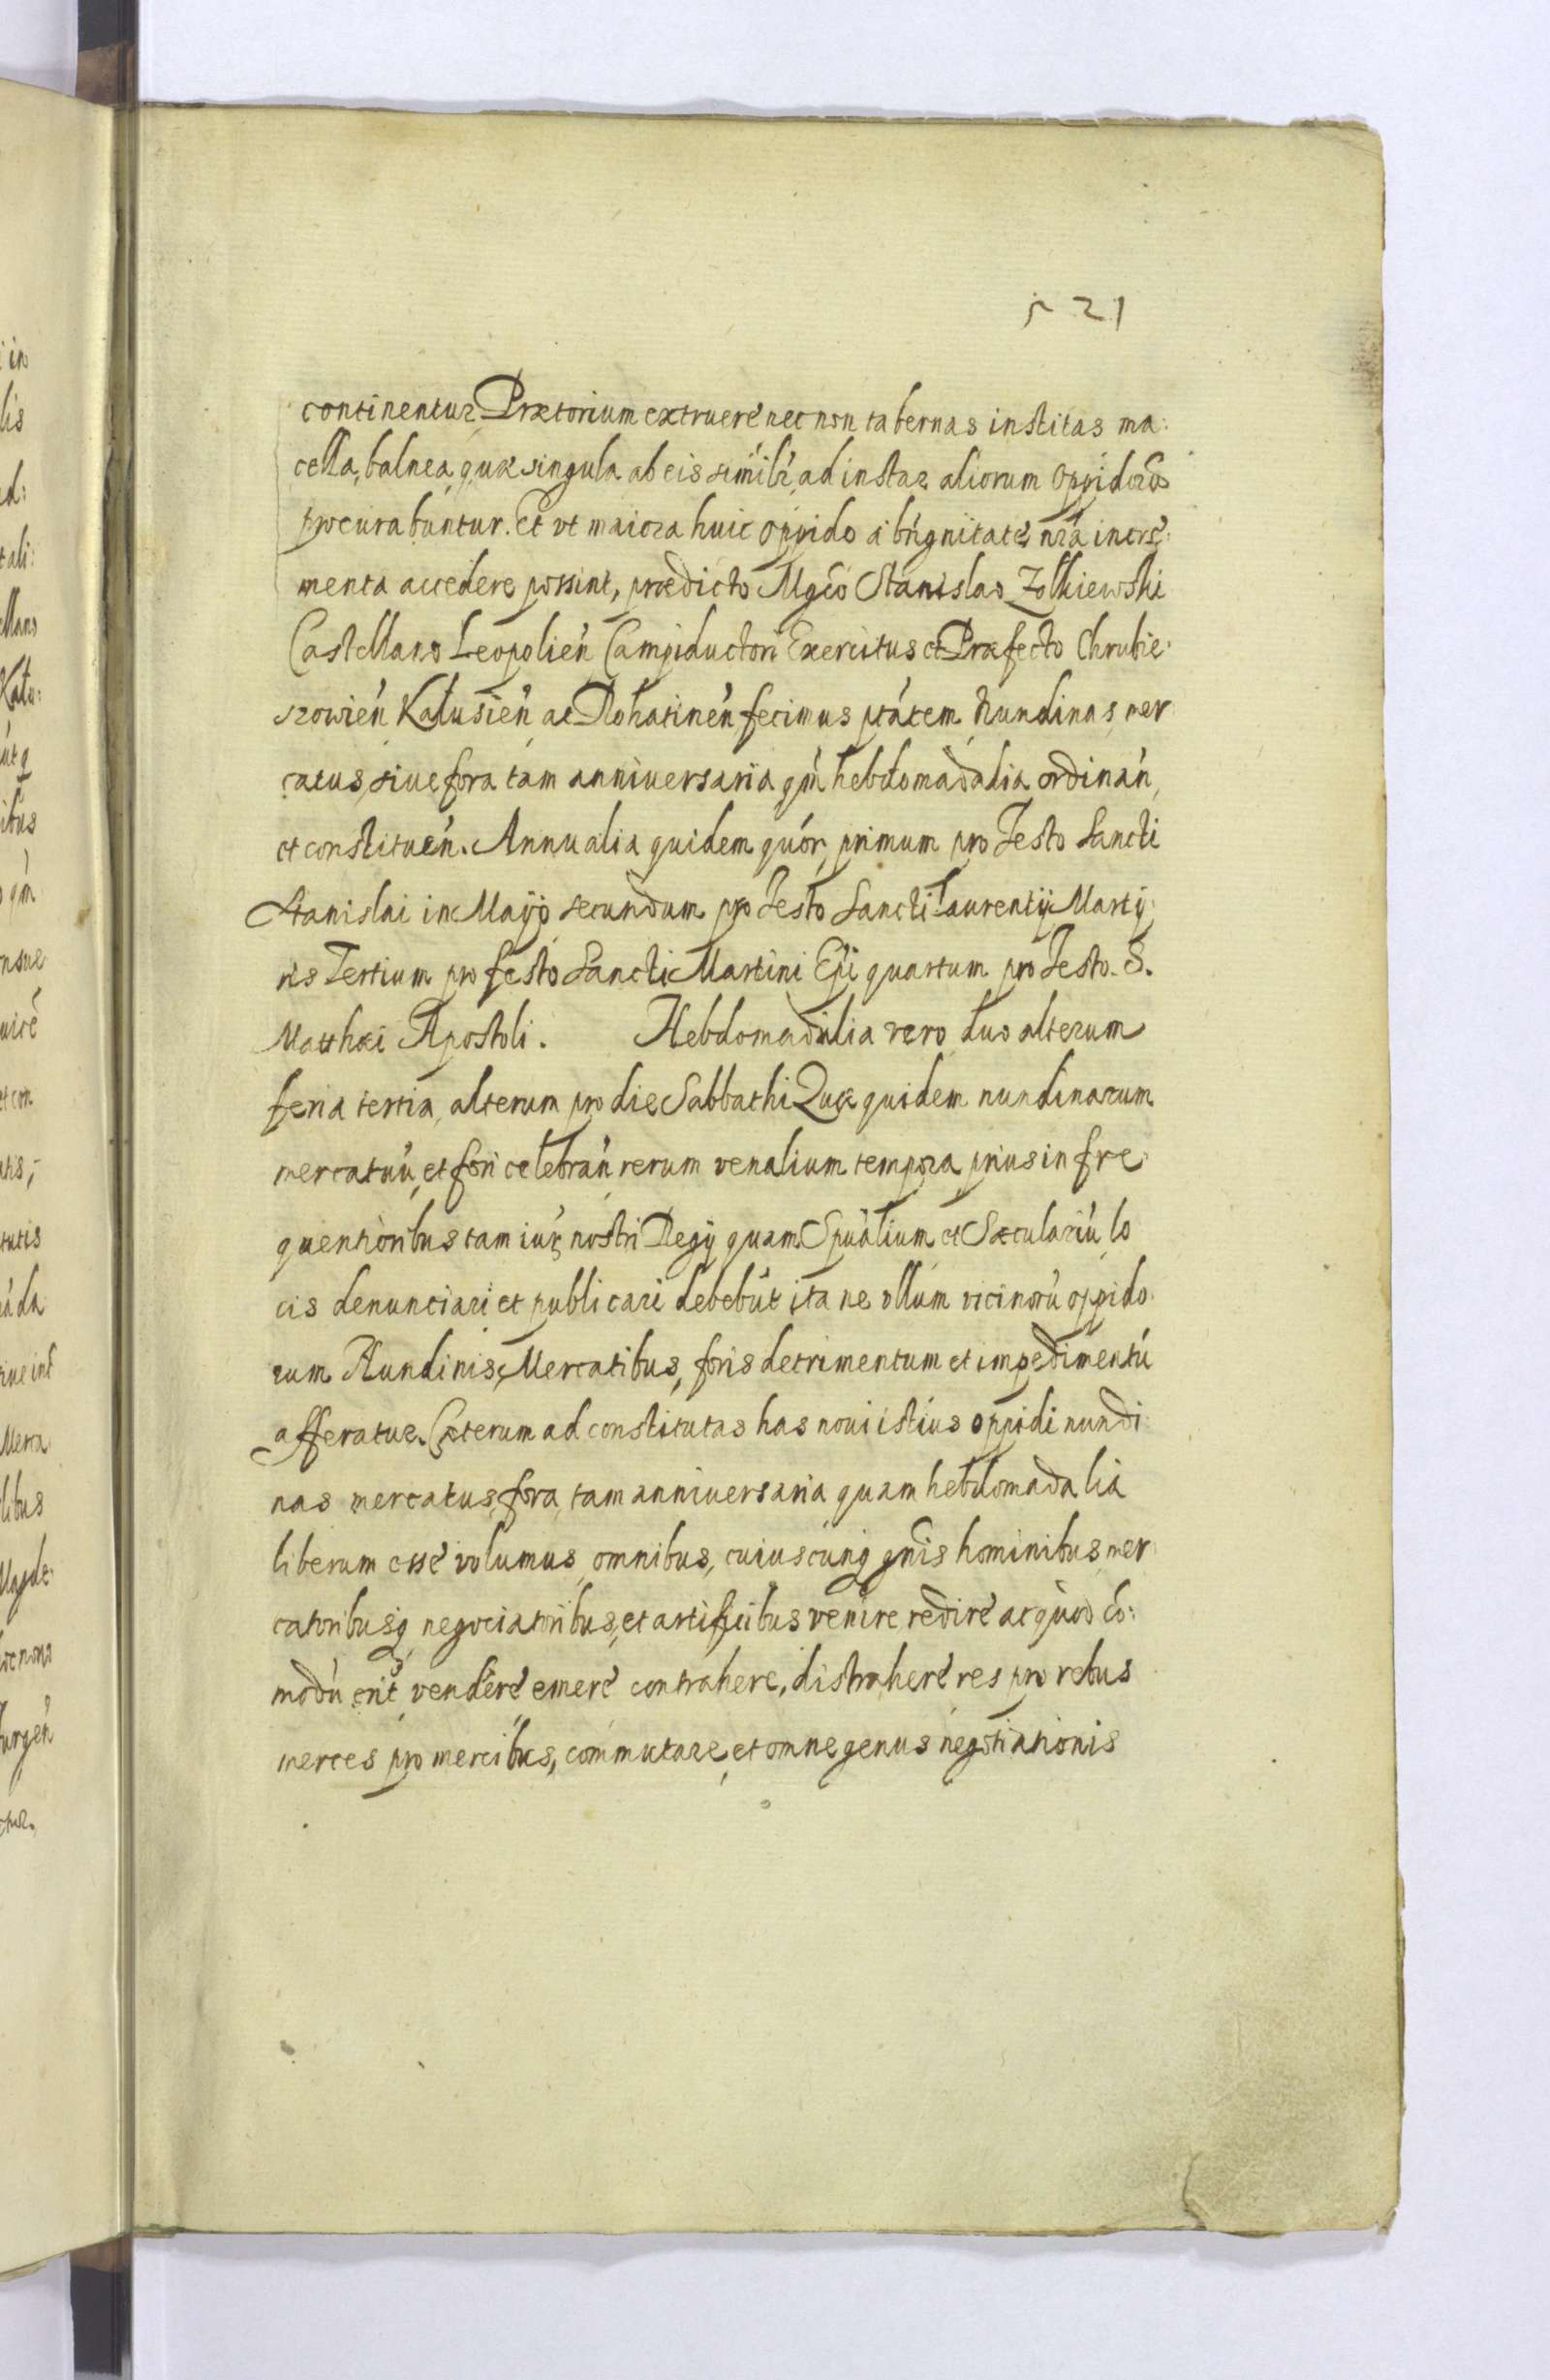 521
continentur Prætorium extruere nec non tabernas institas ma:
cella, balnea, quæ singula ab eis simil'r ad instar aliorum Oppidorũ
procurabuntur. Et vt maiora huic Oppido á bńgnitate nrá incrẽ:
menta accedere possint, prædicto Mgćo Stanislao Zolkiewski
Castellano Leopolień Campiductori Exercitus et Præfecto Chrubie:
szowień Kalusień ac Rohatineń fecimus ptátem Nundinas, mer
catus, siue fora tam anniuersaria qm̃ hebdomadalia ordinań,
et constituen̄. Annualia quidem quór, primum pro Festo Sancti
Stanislai in Mayo secundum pro Festo Sancti Laurentij Marty
ris Tertium pro festo Sancti Martini Epi̇ quartum pro Festo. S.
Matthæi Apostoli. Hebdomadalia vero duo alterum
feria tertia, alterum pro die Sabbathi Quæ quidem nundinarum
mercatuũ, et fori celebrań rerum venalium tempora prius in fre
quentioribus tam iur̃ nostri Regij quam Spũalium et Sæculariũ lo
cis denunciari et publicari debebũt ita ne vllum vicinorũ oppido
rum Nundinis, Mercatibus, foris detrimentum et impedimentũ
afferatur. Cæterum ad constitutas has noui istius oppidi nundi
nas mercatus, fora, tam anniuersaria quam hebdomadalia
liberum esse volumus omnibus, cuiuscunq gñis hominibus, mer
catoribusq negociatoribus, et artificibus venire redire ac quod cõ:
modũ erit vendere emere contrahere, distrahere res pro rebus
merces pro mercibus, commutare, et omne genus negotiationis